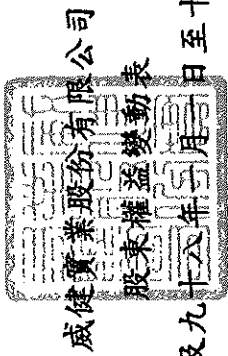 威健實業股份有限公司
股東權益變動表
及九十八年一月一日至十